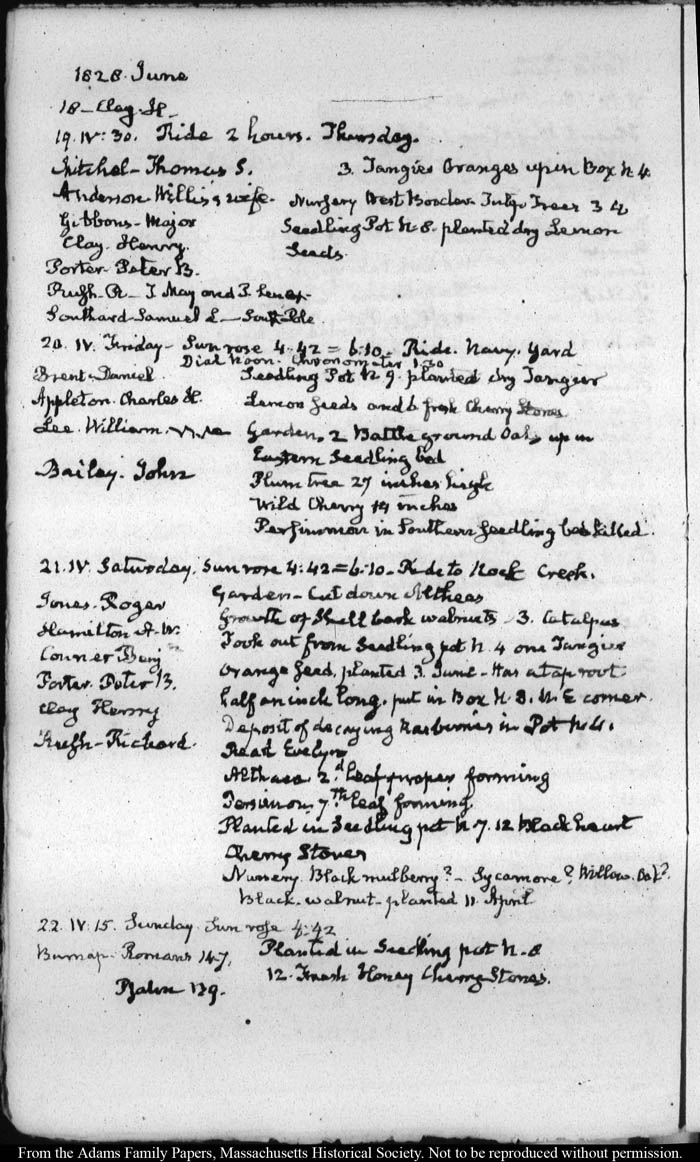 1828. June
18 - Clay. H.
19. IV: 30. Ride 2 hours. Thursday.
Mitchel - Thomas S.
Anderson Willis & wife.
Gibbons - Major
Clay. Henry.
Porter. Peter B.
Rush. R - T May and P.
Southard Samuel L - South Pole
3. Tangier Oranges up in Box N 4.
Nursery West Border. Tulip Trees 3 4
Seedling Pot N. 8. planted dry Lemon
Seeds.
20. IV. Friday - Sun rose 4:42 = 6:10 - Ride. Navy. Yard
Dial Noon. Chronometer 1:30
Brent. Daniel.
Appleton. Charles H.
Lee. William.
Bailey. John
Seedling Pot N 9. planted dry Tangier
Lemon Seeds and 6 fresh Cherry Stones
Garden, 2 Battle ground Oaks up in
Eastern Seedling bed
Plum tree 27 inches high
Wild Cherry 14 inches
Persimmon in Southern Seedling bed killed.
21. IV. Saturday. Sun rose 4:42 = 6:10 - Ride to Rock Creek.
Jones. Roger
Hamilton A. W.
Conner Benjn
Porter. Peter B.
Clay Henry
Rush - Richard.
Garden - Cut down Altheas
Growth of Shell bark walnuts - 3. Catalpas
Took out from Seedling pot N. 4 one Tangier
Orange Seed, planted 3. June - Has a tap root
half an inch long. put in Box N. 8. N. E corner.
Deposit of decaying in Pot N 4.
Read Evelyn
Althaea 2d leaf proper forming
Persimon 7th leaf forming
Planted in Seedling pot N 7. 12 black heart
Cherry Stones
Nursery. Black mulberry? - Sycamore? Willow. Oak?
Black walnut - planted 11 April
22. IV. 15. Sunday Sun rose 4:42
Burnap. Romans 14.7,
Psalm 139.
Planted in Seedling pot N. 8
12. Fresh Honey Cherry Stones.
From the Adams Family Papers, Massachusetts Historical Society. Not to be reproduced without permission.